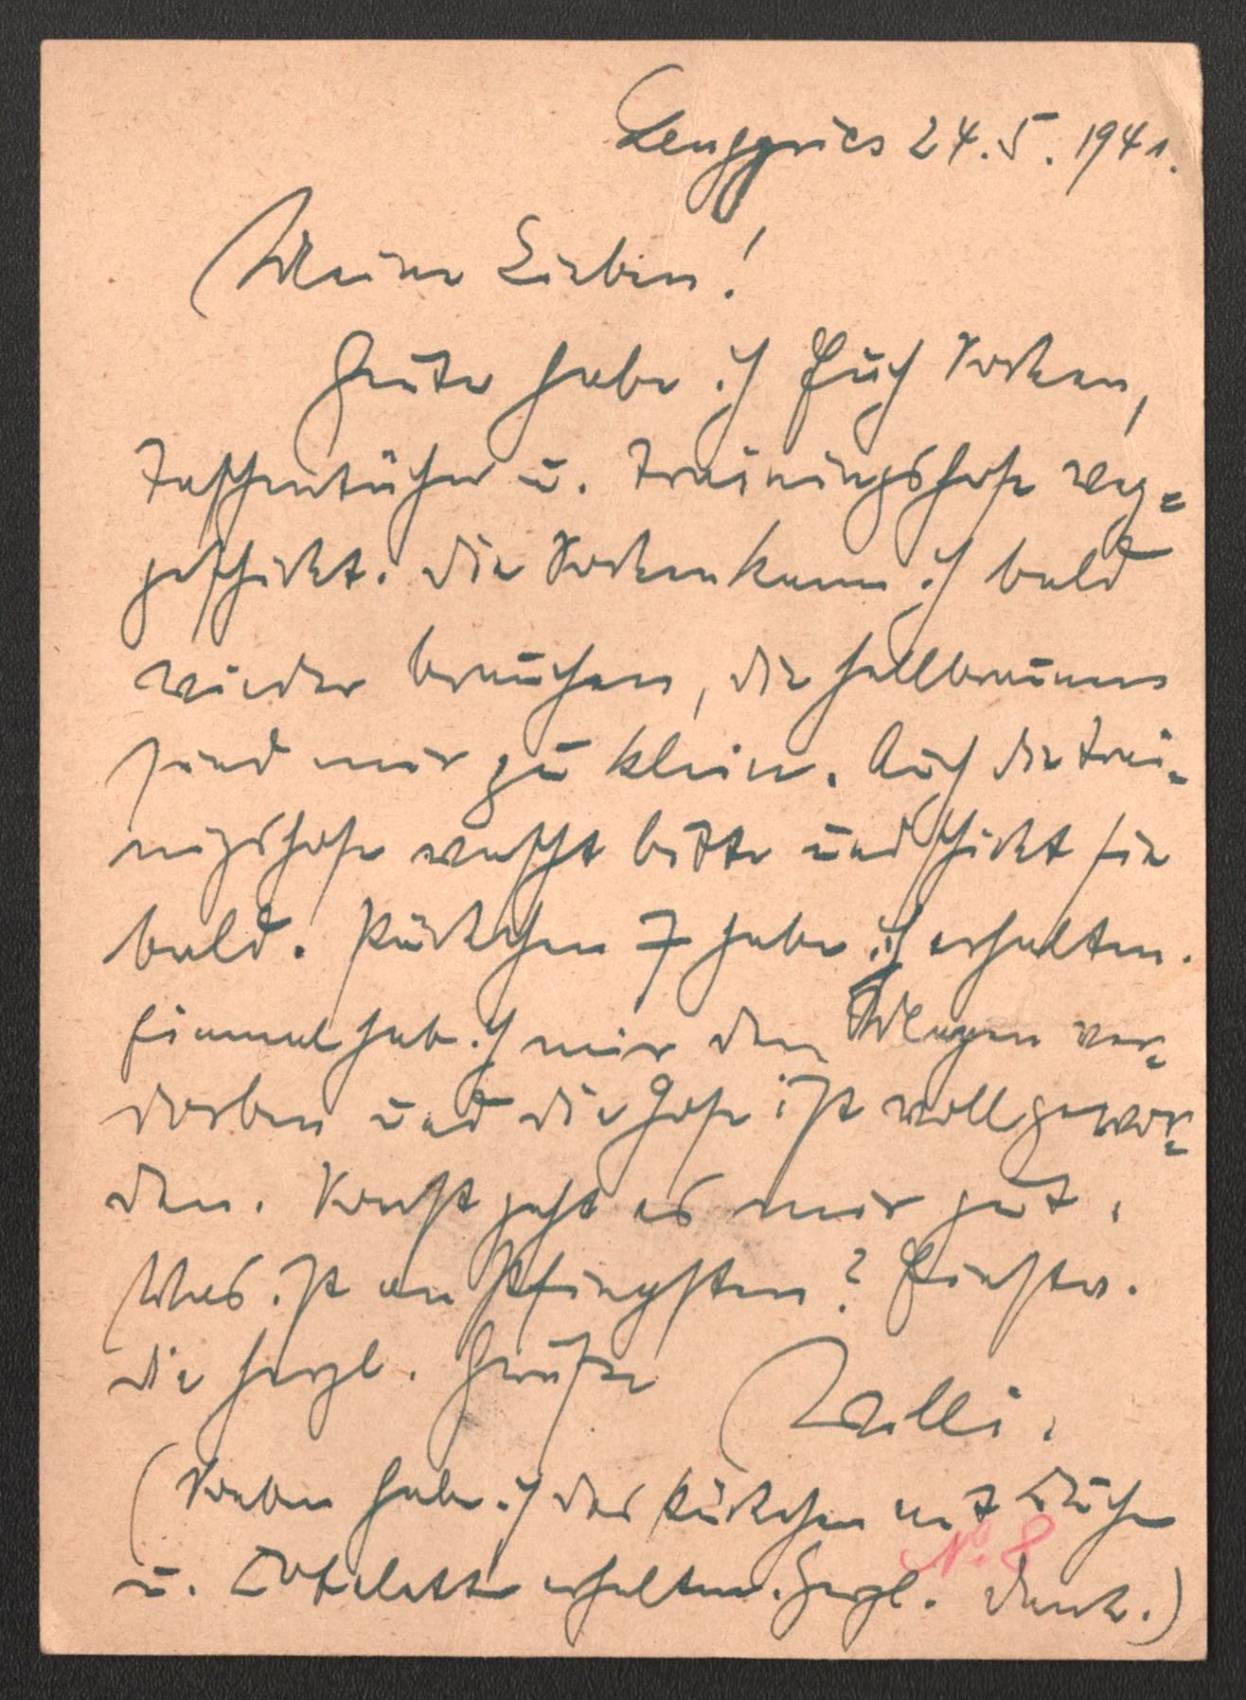 Lenggries 24.5.1941.
Meine Lieben!
Heute habe ich Euch Socken,
Taschentücher u. Trainingshose weg=
geschickt. Die Socken kann ich bald
wieder brauchen, die hellbraunen
sind mir zu klein. Auch die Trai=
ningshose wascht bitte und schickt sie
bald. Päckchen 7 habe ich erhalten.
Einmal hab ich mir den Magen ver=
dorben und die Hose ist voll gewor=
den. Sonst geht es mir gut.
Was ist an Pfingsten? Einstw.
die herzl. Grüße
Willi.
(Soeben habe ich das Päckchen mit
u. Kotelette erhalten. Herzl. Dank.)
No. 8